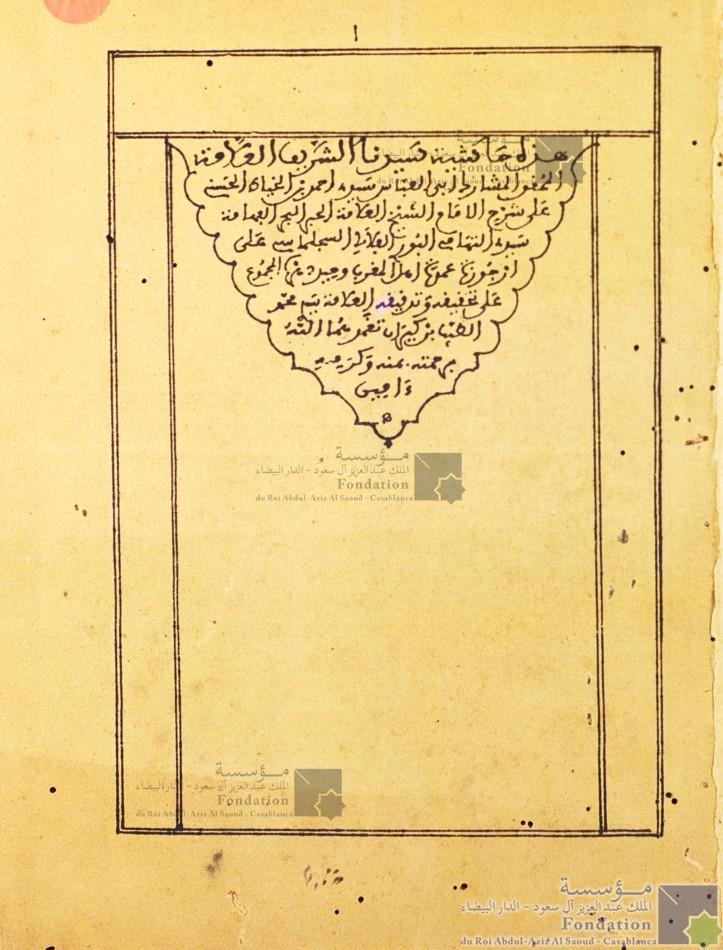 ١
هذه حاشية سيدنا الشريف العلامة
المحقق المشارك أبي العباس سيدي احمد بن الخياط الحسني
على شرح الامام الشيخ العلامة الحبر البحر الفهامة
سيدي التهامي البوري السجلماسي على
ارجوزة عمدة اهل المغرب المجموع
على تحقيقه وتدقيقه العلامة سيد محمد
الطيب بن كيران تغمدهما الله
برحمته بمنه وكرمه
ءامين
ه
مؤسسة
الملك عبد العزيز آل سعود - الدار البيضاء
Fondation
du Roi Abdul-Aziz Al Saoud - Casablanca
مؤسسة
الملك عبد العزيز آل سعود - الدار البيضاء
Fondation
du Roi Abdul-Aziz Al Saoud - Casablanca
مؤسسة
الملك عبد العزيز آل سعود - الدار البيضاء
Fondation
du Roi Abdul-Aziz Al Saoud - Casablanca